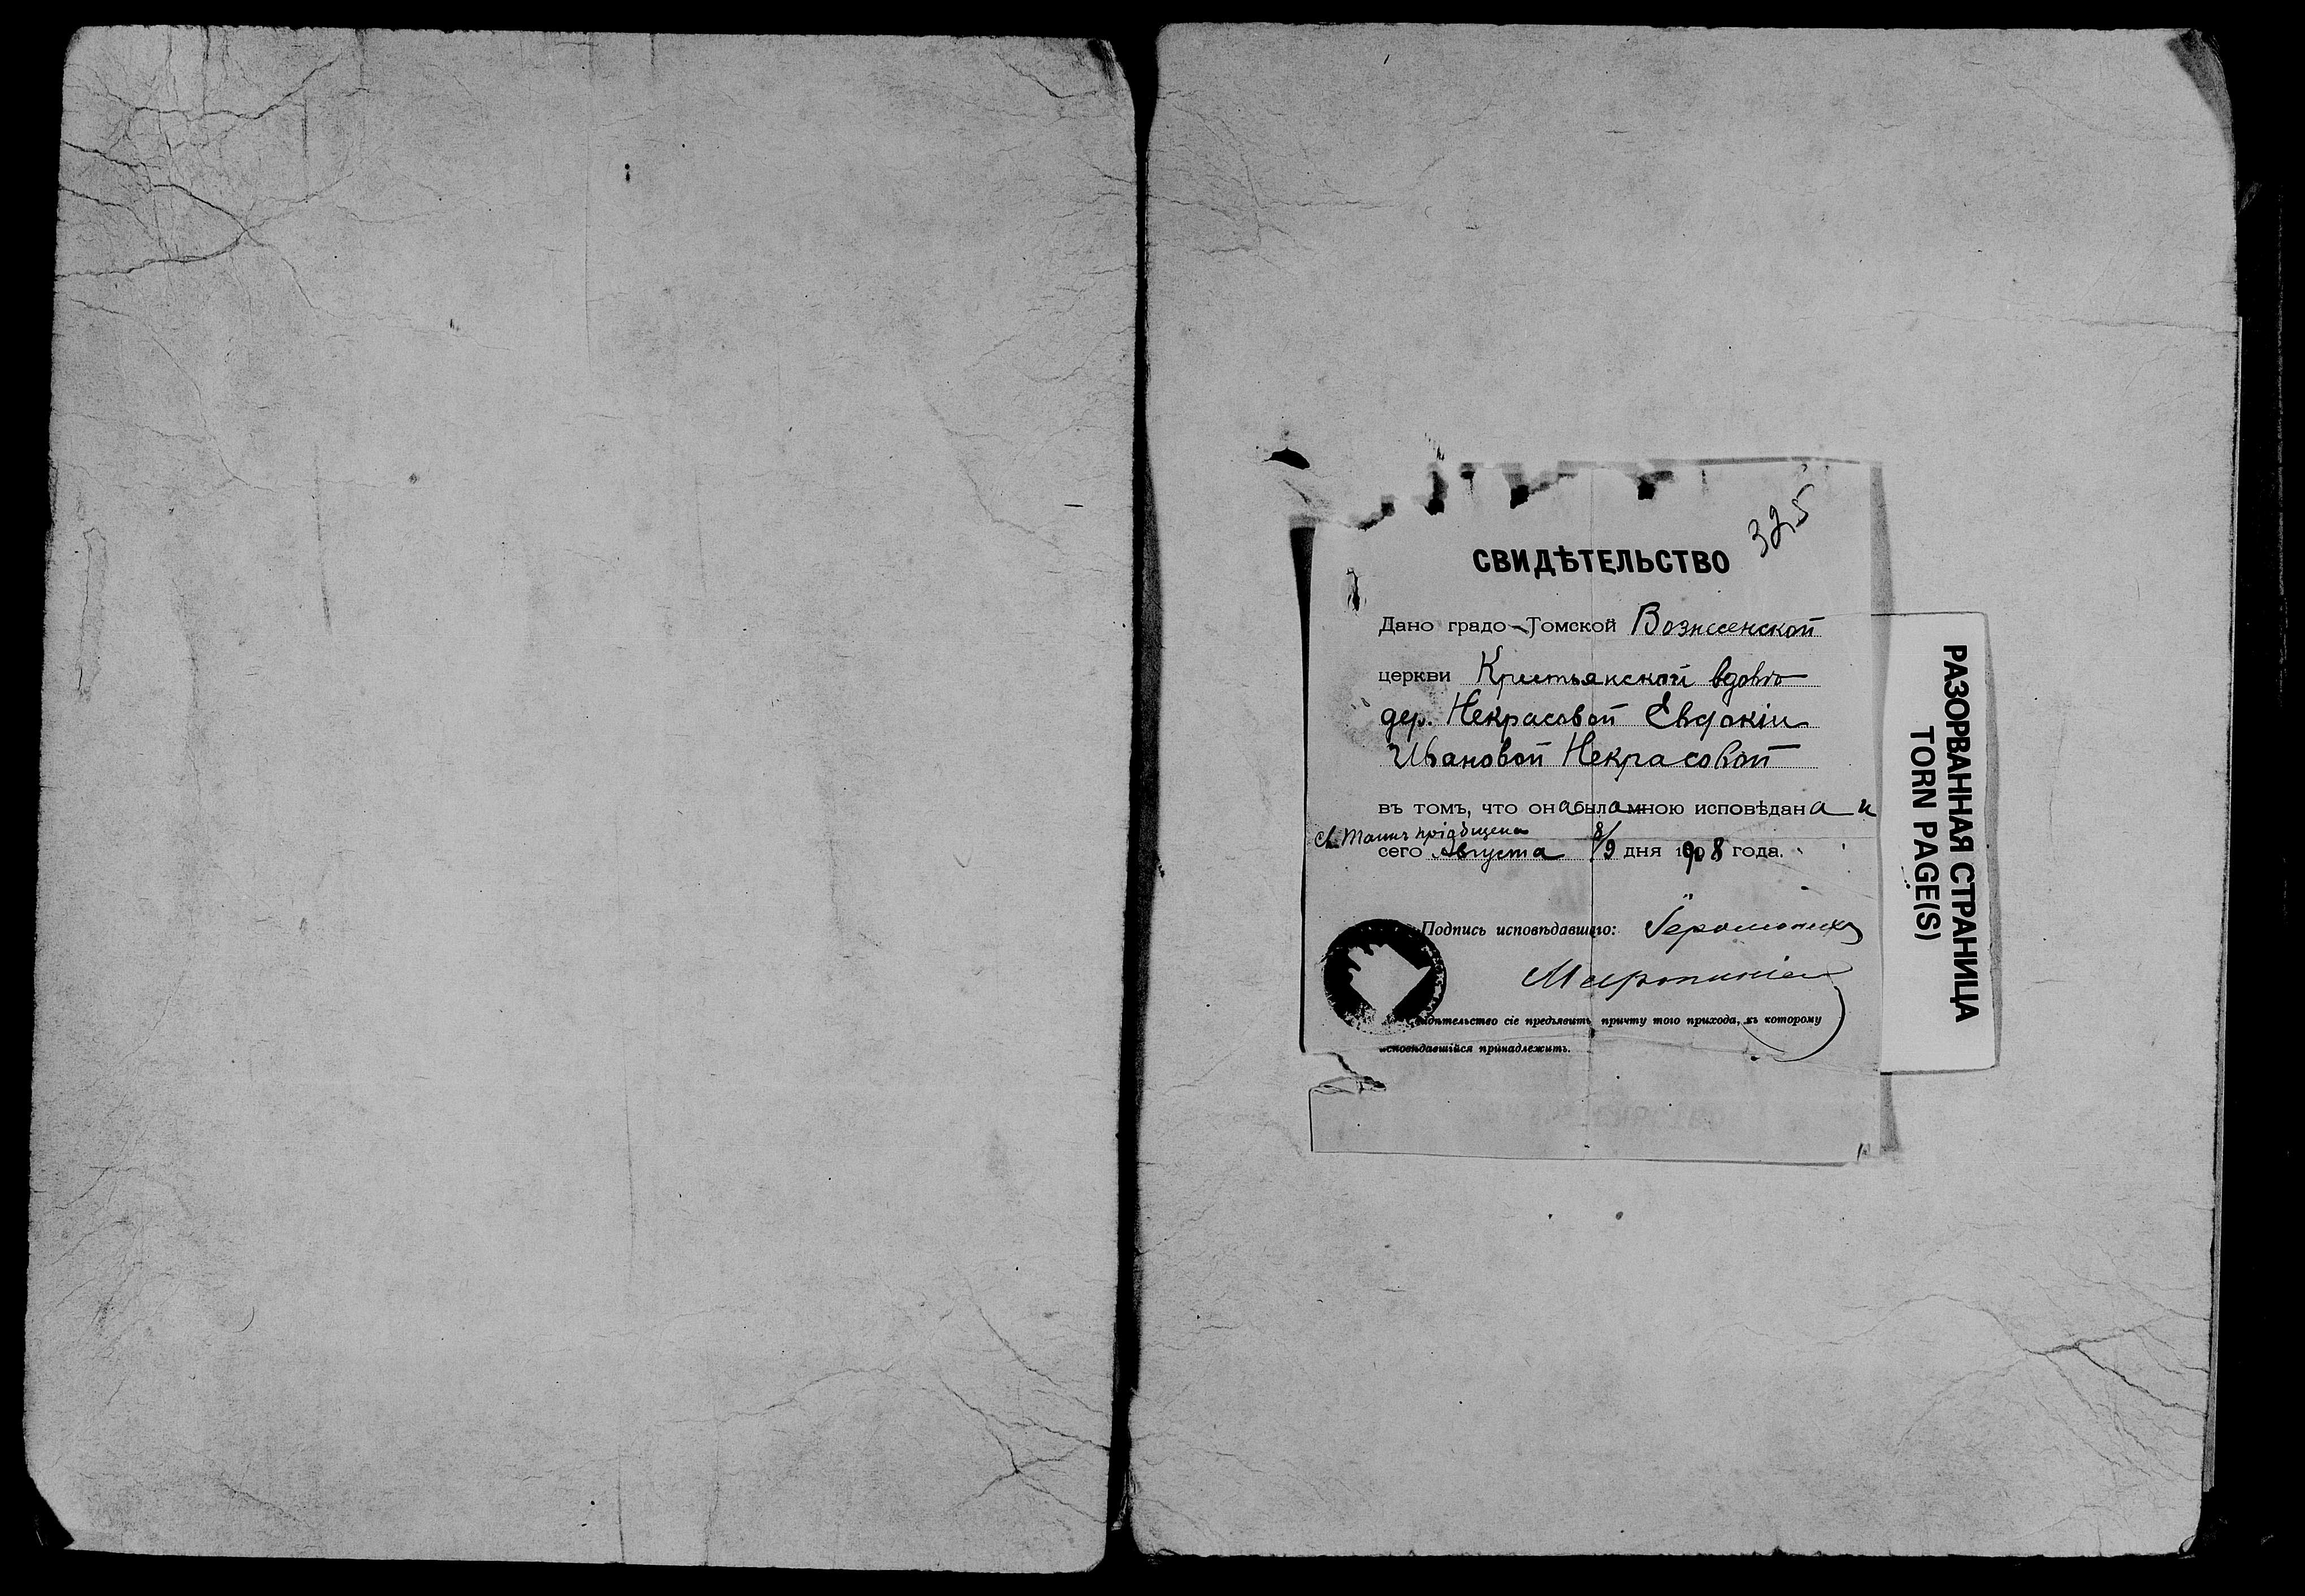 325
СВИДѢТЕЛЬСТВО
Дано градо-Томской Вознесенской
церкви Крестьянской вдовѣ
дер. Некрасовой Евдокіи
Ивановой Некрасовой
въ томъ, что она была мною исповѣдана и
Св. Таинъ пріобщена
сего Августа 8/9 дня 1908 года.
Подпись исповѣдавшаго: Іеромонахъ
идѣтельство сіе предъявить причту того прихода, къ которому
исповѣдавшійся принадлежитъ.
РАЗОРВАННАЯ СТРАНИЦА
TORN PAGE(S)